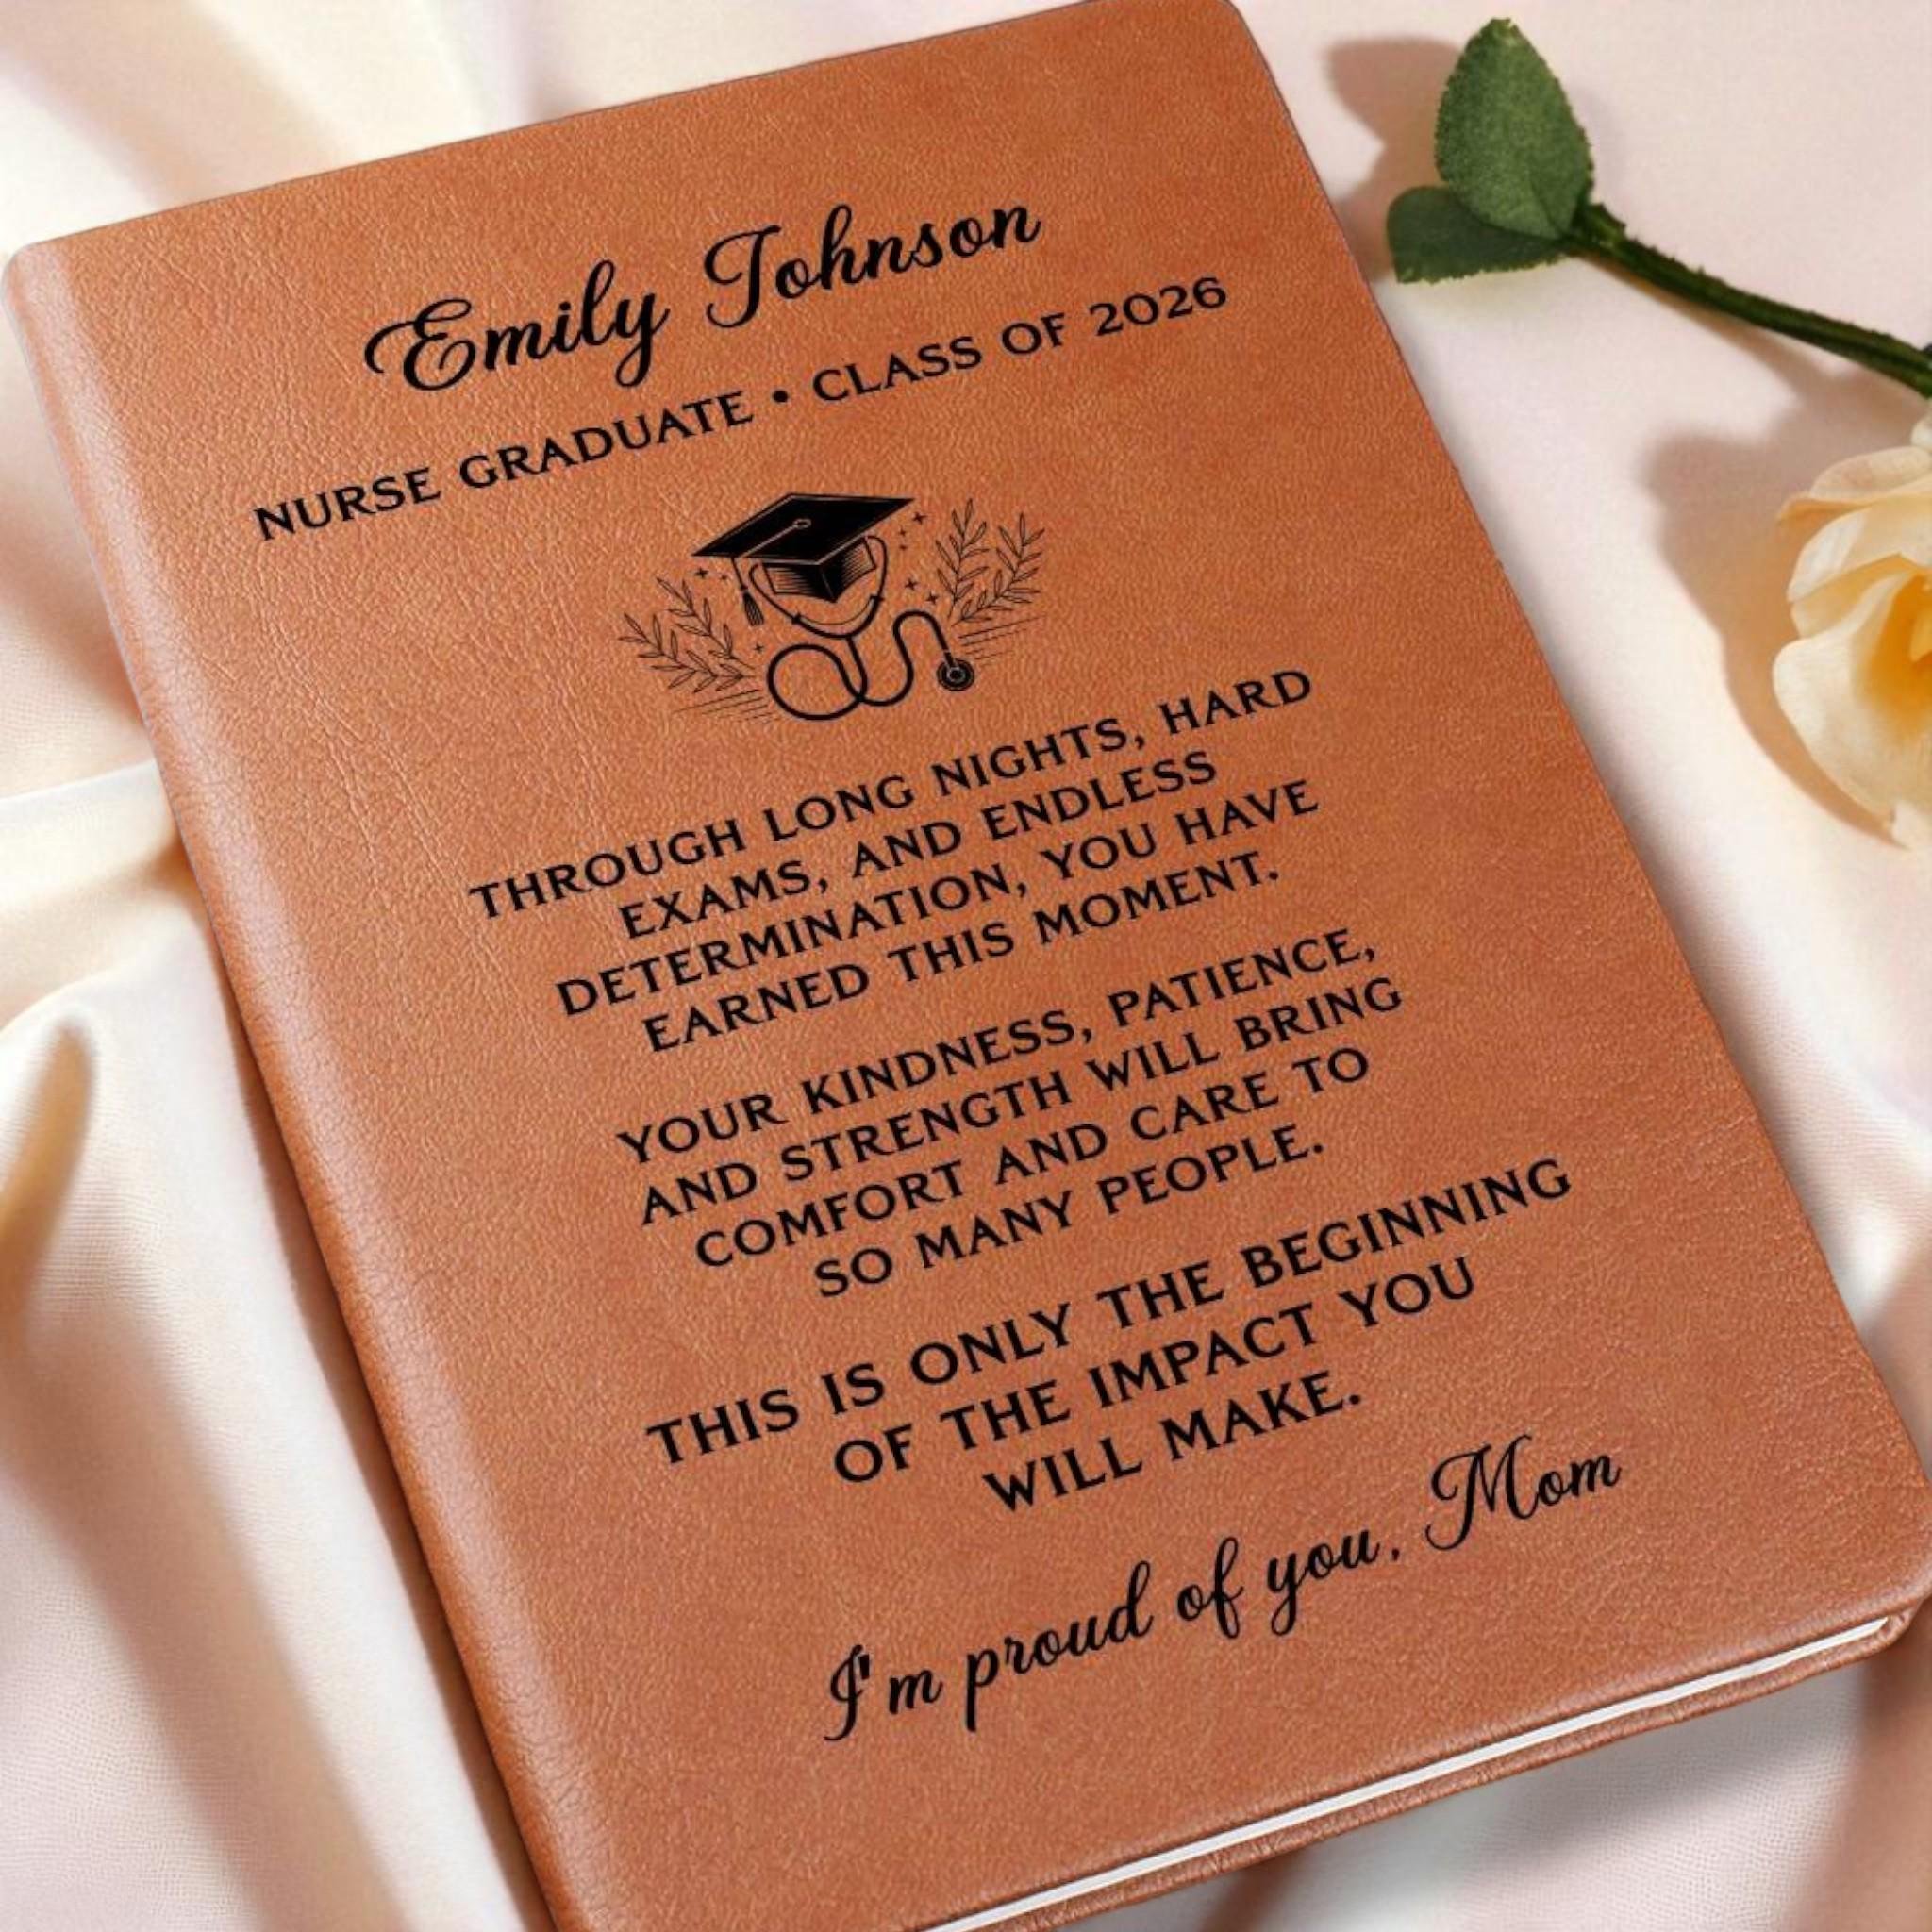 Emily Johnson
NURSE GRADUATE • CLASS OF 2026
THROUGH LONG NIGHTS, HARD
EXAMS, AND ENDLESS
DETERMINATION, YOU HAVE
EARNED THIS MOMENT.
YOUR KINDNESS, PATIENCE,
AND STRENGTH WILL BRING
COMFORT AND CARE TO
SO MANY PEOPLE.
THIS IS ONLY THE BEGINNING
OF THE IMPACT YOU
WILL MAKE.
I'm proud of you, Mom